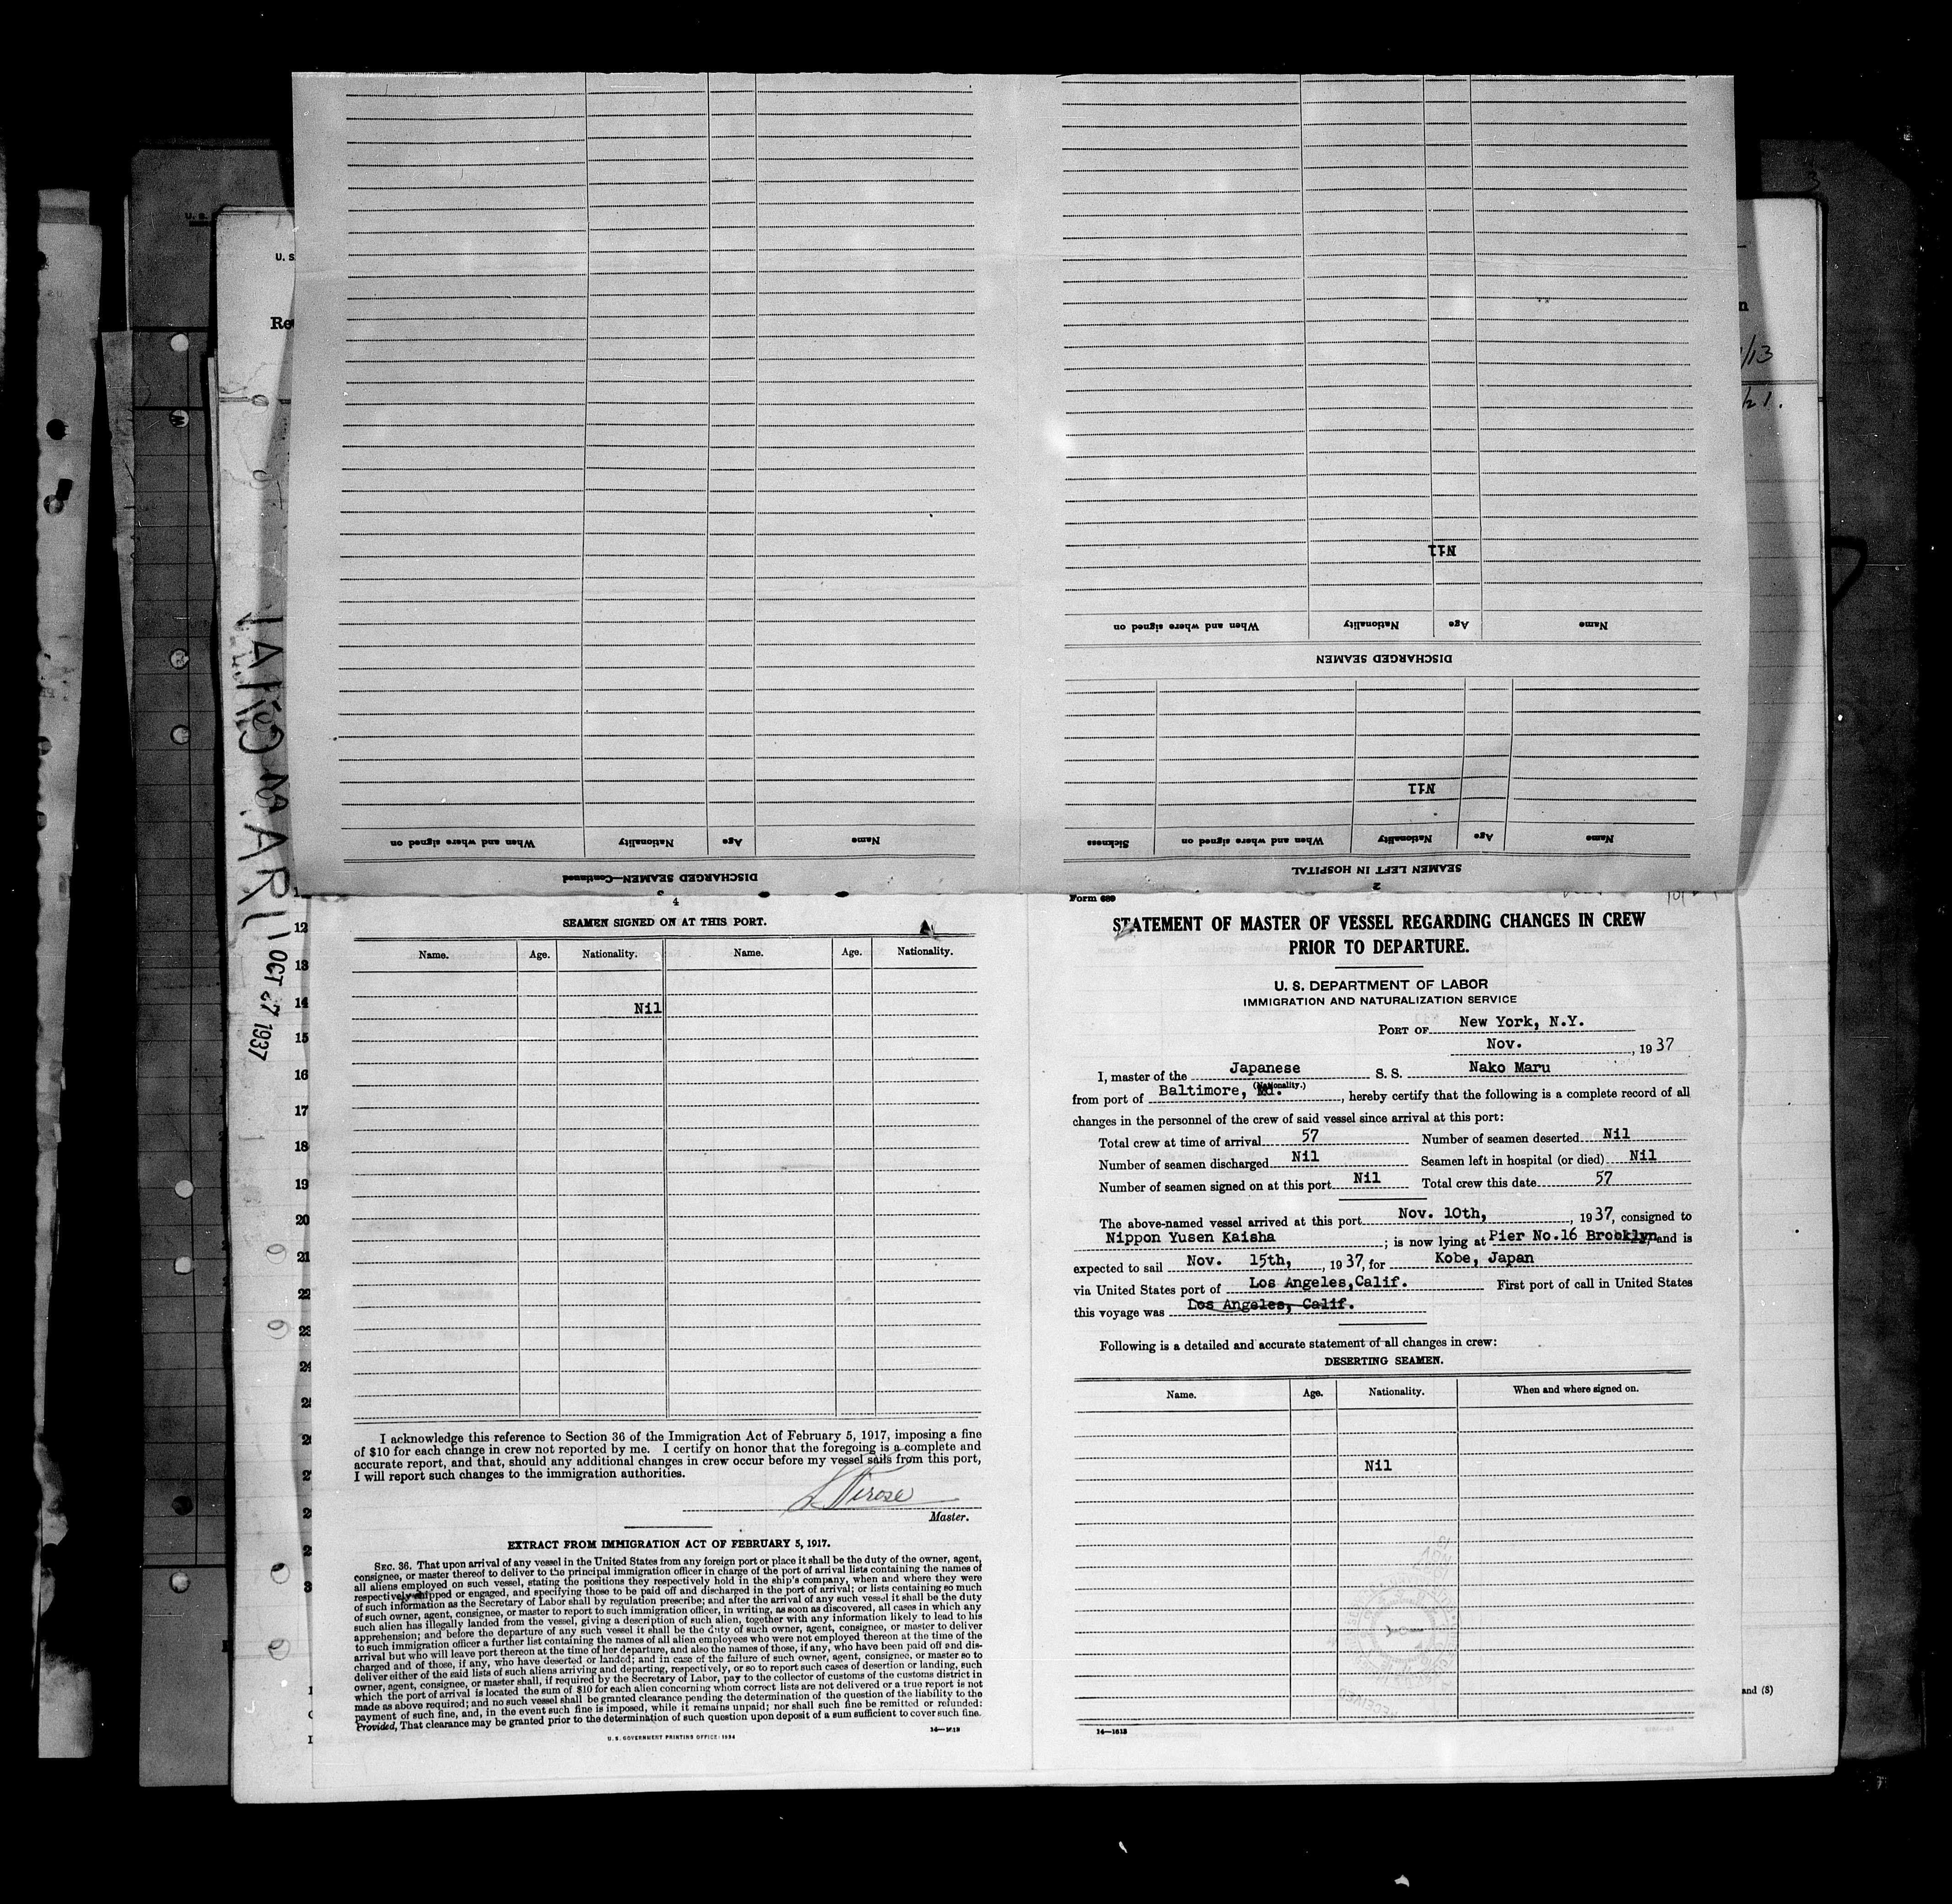 2
SEAMEN LEFT IN HOSPITAL
Name Age Nationality When and where signed on Sickness
Nil
DISCHARGED SEAMEN
Name Age Nationality When and where signed on
Nil
3
DISCHARGED SEAMEN—Continued
Name Age Nationality When and where signed on
4
SEAMEN SIGNED ON AT THIS PORT.
Name. Age. Nationality. Name. Age. Nationality.
Nil
I acknowledge this reference to Section 36 of the Immigration Act of February 5, 1917, imposing a fine
of $10 for each change in crew not reported by me. I certify on honor that the foregoing is a complete and
accurate report, and that, should any additional changes in crew occur before my vessel sails from this port,
I will report such changes to the immigration authorities.
Master.
EXTRACT FROM IMMIGRATION ACT OF FEBRUARY 5, 1917.
SEC. 36. That upon arrival of any vessel in the United States from any foreign port or place it shall be the duty of the owner, agent,
consignee, or master thereof to deliver to the principal immigration officer in charge of the port of arrival lists containing the names of
all aliens employed on such vessel, stating the positions they respectively hold in the ship's company, when and where they were
respectively shipped or engaged, and specifying those to be paid off and discharged in the port of arrival; or lists containing so much
of such information as the Secretary of Labor shall by regulation prescribe; and after the arrival of any such vessel it shall be the duty
of such owner, agent, consignee, or master to report to such immigration officer, in writing, as soon as discovered, all cases in which any
such alien has illegally landed from the vessel, giving a description of such alien, together with any information likely to lead to his
apprehension; and before the departure of any such vessel it shall be the duty of such owner, agent, consignee, or master to deliver
to such immigration officer a further list containing the names of all alien employees who were not employed thereon at the time of the
arrival but who will leave port thereon at the time of her departure, and also the names of those, if any, who have been paid off and dis-
charged and of those, if any, who have deserted or landed; and in case of the failure of such owner, agent, consignee, or master so to
deliver either of the said lists of such aliens arriving and departing, respectively, or so to report such cases of desertion or landing, such
owner, agent, consignee, or master shall, if required by the Secretary of Labor, pay to the collector of customs of the customs district in
which the port of arrival is located the sum of $10 for each alien concerning whom correct lists are not delivered or a true report is not
made as above required; and no such vessel shall be granted clearance pending the determination of the question of the liability to the
payment of such fine, and, in the event such fine is imposed, while it remains unpaid; nor shall such fine be remitted or refunded:
Provided, That clearance may be granted prior to the determination of such question upon deposit of a sum sufficient to cover such fine.
U. S. GOVERNMENT PRINTING OFFICE: 1934
Form 689
STATEMENT OF MASTER OF VESSEL REGARDING CHANGES IN CREW
PRIOR TO DEPARTURE.
U. S. DEPARTMENT OF LABOR
IMMIGRATION AND NATURALIZATION SERVICE
PORT OF New York, N.Y.
Nov. , 1937
I, master of the Japanese S. S. Nako Maru
(Nationality.)
from port of Baltimore, Md. , hereby certify that the following is a complete record of all
changes in the personnel of the crew of said vessel since arrival at this port:
Total crew at time of arrival 57 Number of seamen deserted Nil
Number of seamen discharged Nil Seamen left in hospital (or died) Nil
Number of seamen signed on at this port Nil Total crew this date 57
The above-named vessel arrived at this port Nov. 10th, , 1937, consigned to
Nippon Yusen Kaisha ; is now lying at Pier No.16 Brooklyn, and is
expected to sail Nov. 15th, , 1937, for Kobe, Japan
via United States port of Los Angeles,Calif. First port of call in United States
this voyage was Los Angeles, Calif.
Following is a detailed and accurate statement of all changes in crew:
DESERTING SEAMEN.
Name. Age. Nationality. When and where signed on.
Nil
14—1613
OCT 27 1937
12
13
14
15
16
17
18
19
20
21
22
and (S)